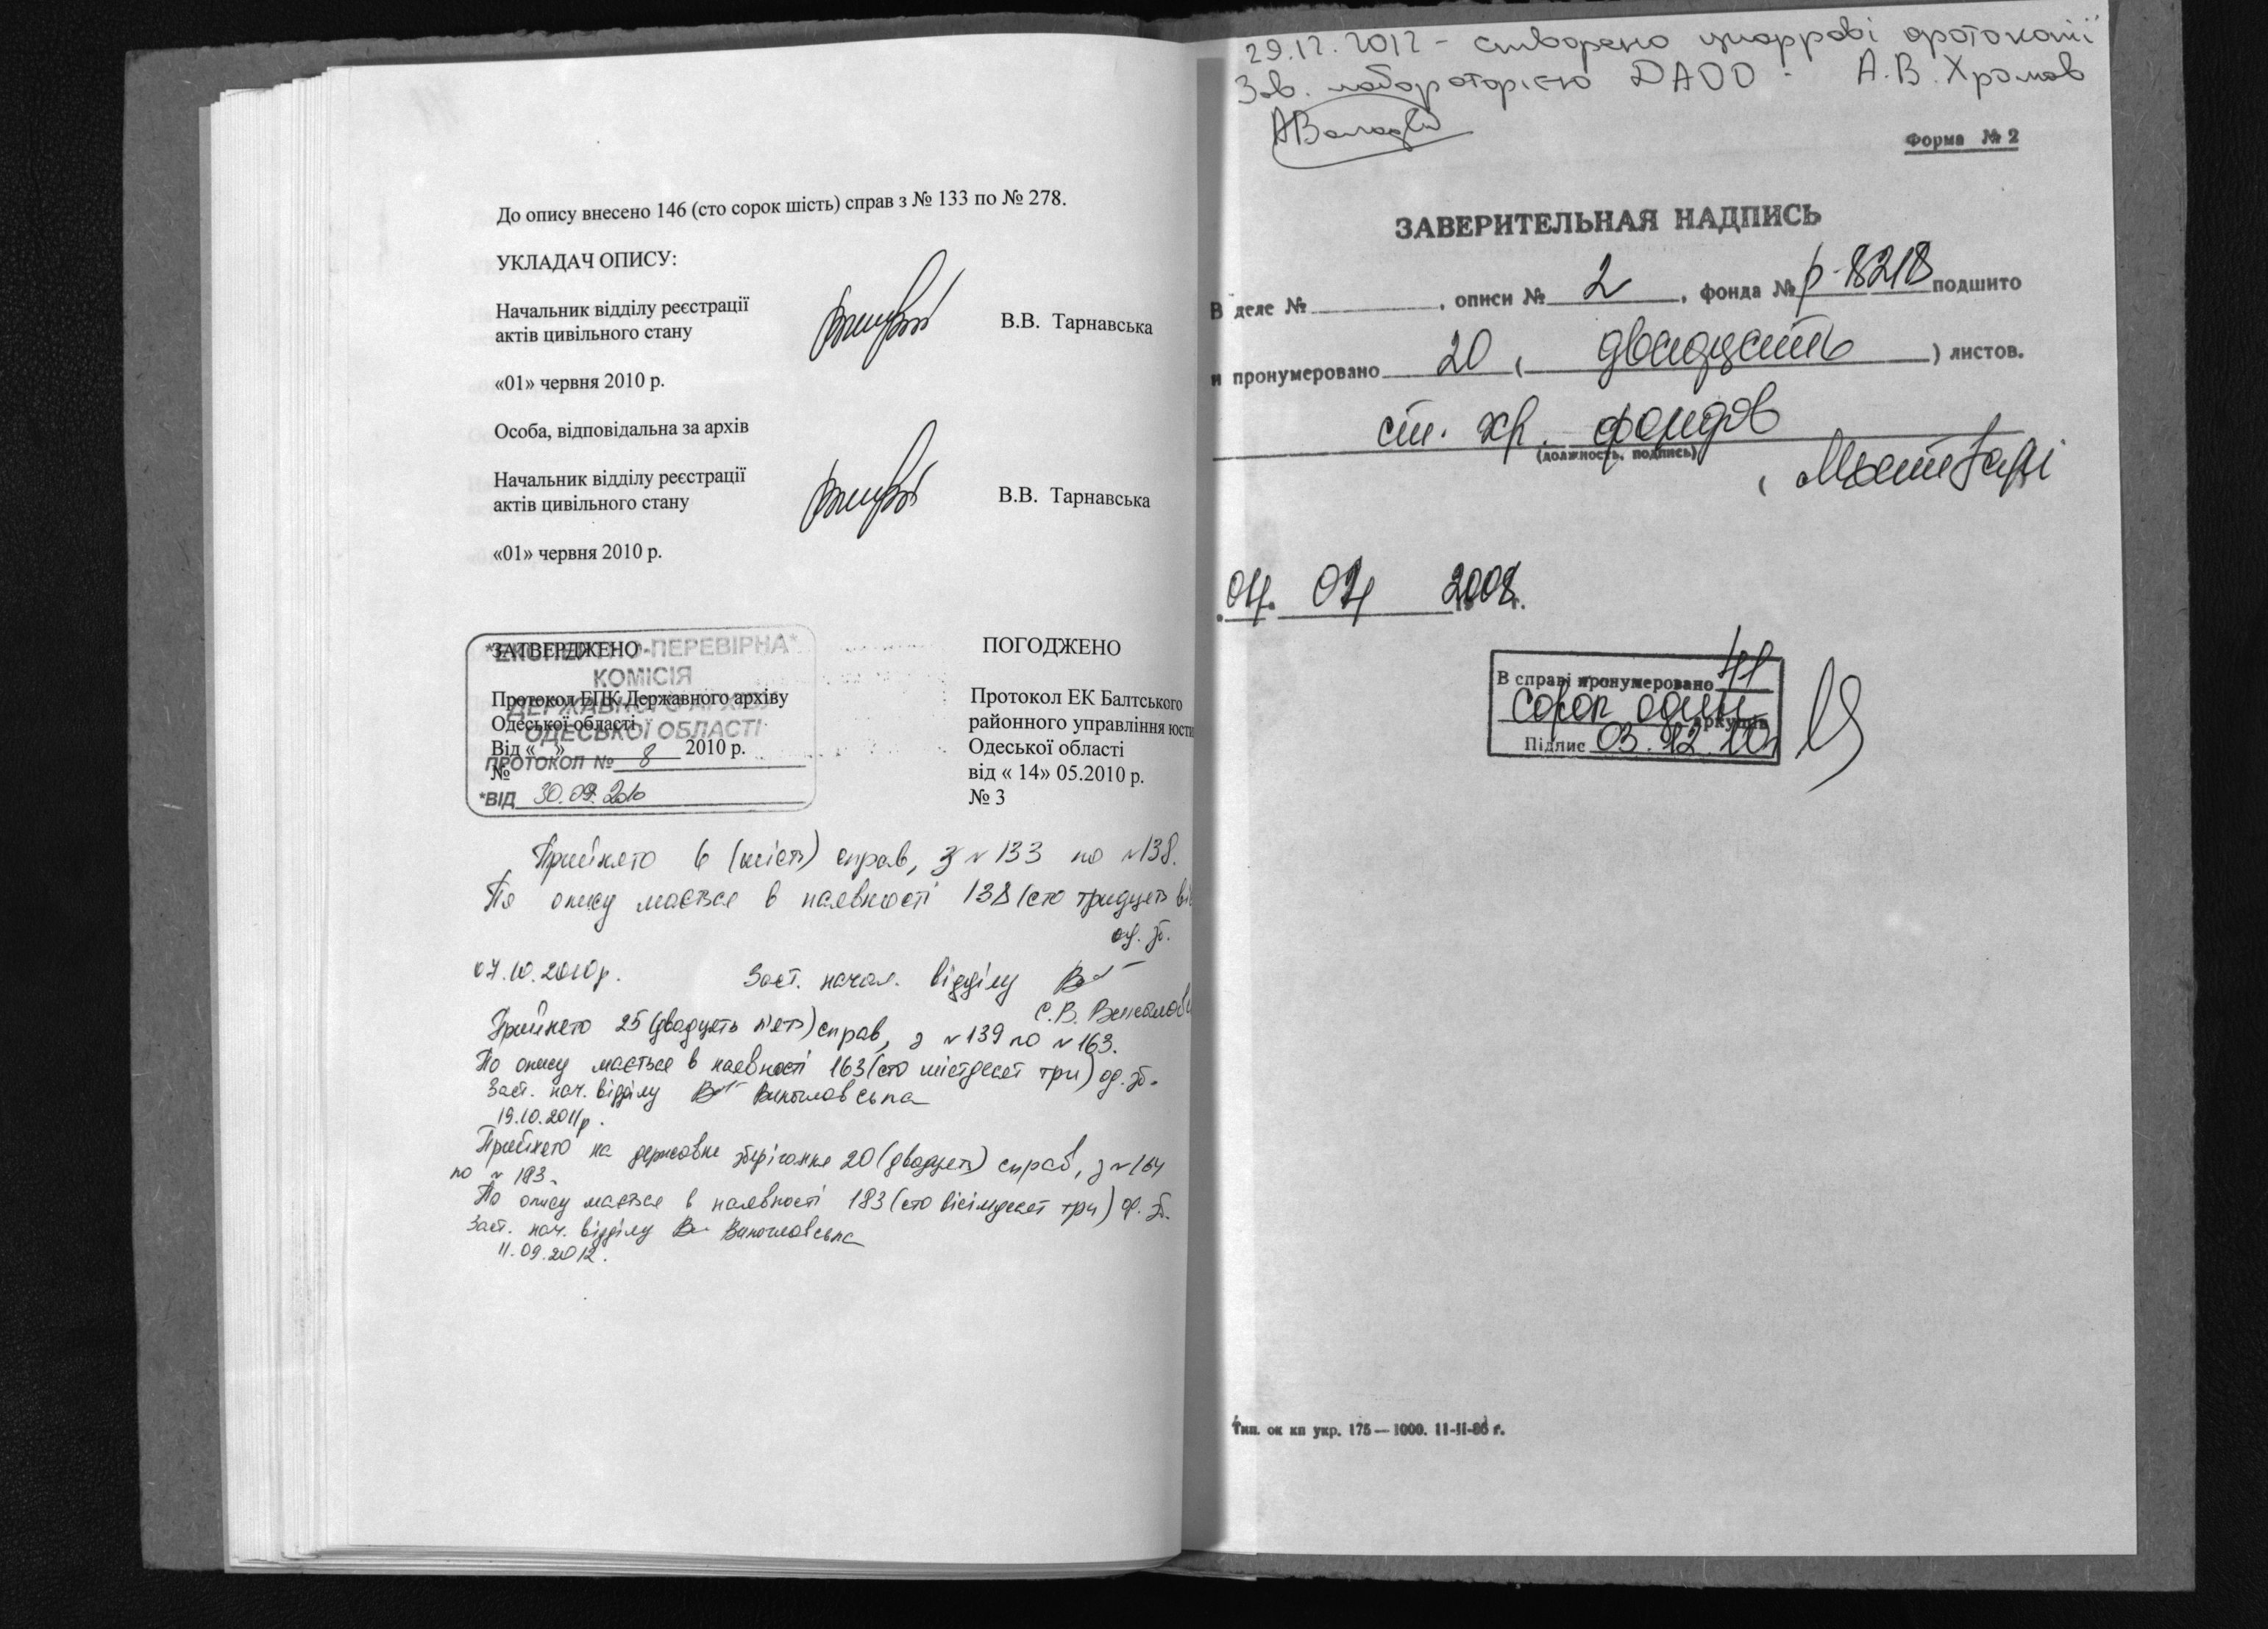 До опису внесено 146 (сто сорок шість) справ з № 133 по № 278.
УКЛАДАЧ ОПИСУ:
Начальник відділу реєстрації
актів цивільного стану
В.В. Тарнавська
«01» червня 2010 р.
Особа, відповідальна за архів
Начальник відділу реєстрації
актів цивільного стану
В.В. Тарнавська
«01» червня 2010 р.
ЗАТВЕРДЖЕНО
Протокол ЕПК Державного архіву
Одеської області
Від « » 2010 р.
№
-ПЕРЕВІРНА*
КОМІСІЯ
ДЕРЖАВНОГО АРХІВУ
ОДЕСЬКОЇ ОБЛАСТІ
ПРОТОКОЛ № 8
*ВІД 30.09.2010
ПОГОДЖЕНО
Протокол ЕК Балтського
районного управління юсти
Одеської області
від « 14» 05.2010 р.
№ 3
Прийнято 6 (шість) справ, з №133 по №138.
По опису мається в наявності 138 (сто тридцять ві
од. зб.
07.10.2010р. Заст. начал. відділу
С.В.
Прийнято 25 (двадцять п'ять) справ, з №139 по №163.
По опису мається в наявності 163 (сто шістдесят три) од. зб.
Заст. нач. відділу
19.10.2011р.
Прийнято на державне зберігання 20 (двадцять) справ, з №164
по № 183.
По опису мається в наявності 183 (сто вісімдесят три) од. зб.
Заст. нач. відділу
11.09.2012.
29.12.2012 - створено цифрові фотокопії
Зав. лабораторією ДАОО - А.В. Хромов
Форма № 2
ЗАВЕРИТЕЛЬНАЯ НАДПИСЬ
В деле № , описи № 2 , фонда № р-8218 подшито
и пронумеровано 20 ( двадцать ) листов.
ст. хр. фондов
(должность, подпись)
04. 04 2008 г.
В справі пронумеровано 41
сорок один аркушів
Підпис 03.12.10р
Тип. ок кп укр. 175—1000. 11-II-86 г.